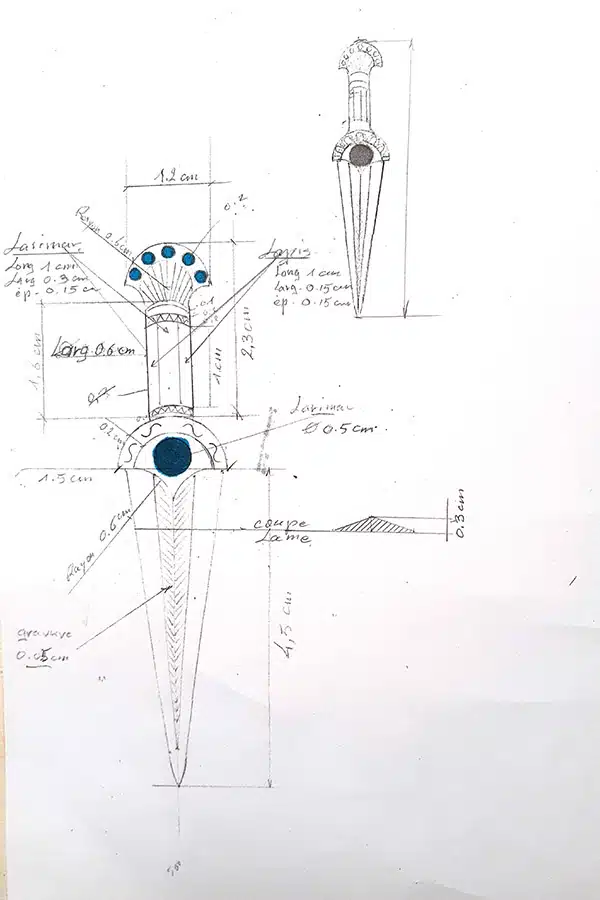 1.2 cm
Rayon 0.6cm
Larimar
Long 1 cm
Larg 0.3 cm
ép. 0.15 cm
Lapis
Long 1 cm
Larg. 0.15cm
ép. 0.15cm
0.1
Larg 0.6cm
1,6 cm
1cm
2,3cm
Larimar
Ø 0.5cm
0.2cm
1.5cm
Rayon 0.6cm
coupe
Lame
0.3cm
gravure
0.05cm
4,5 cm